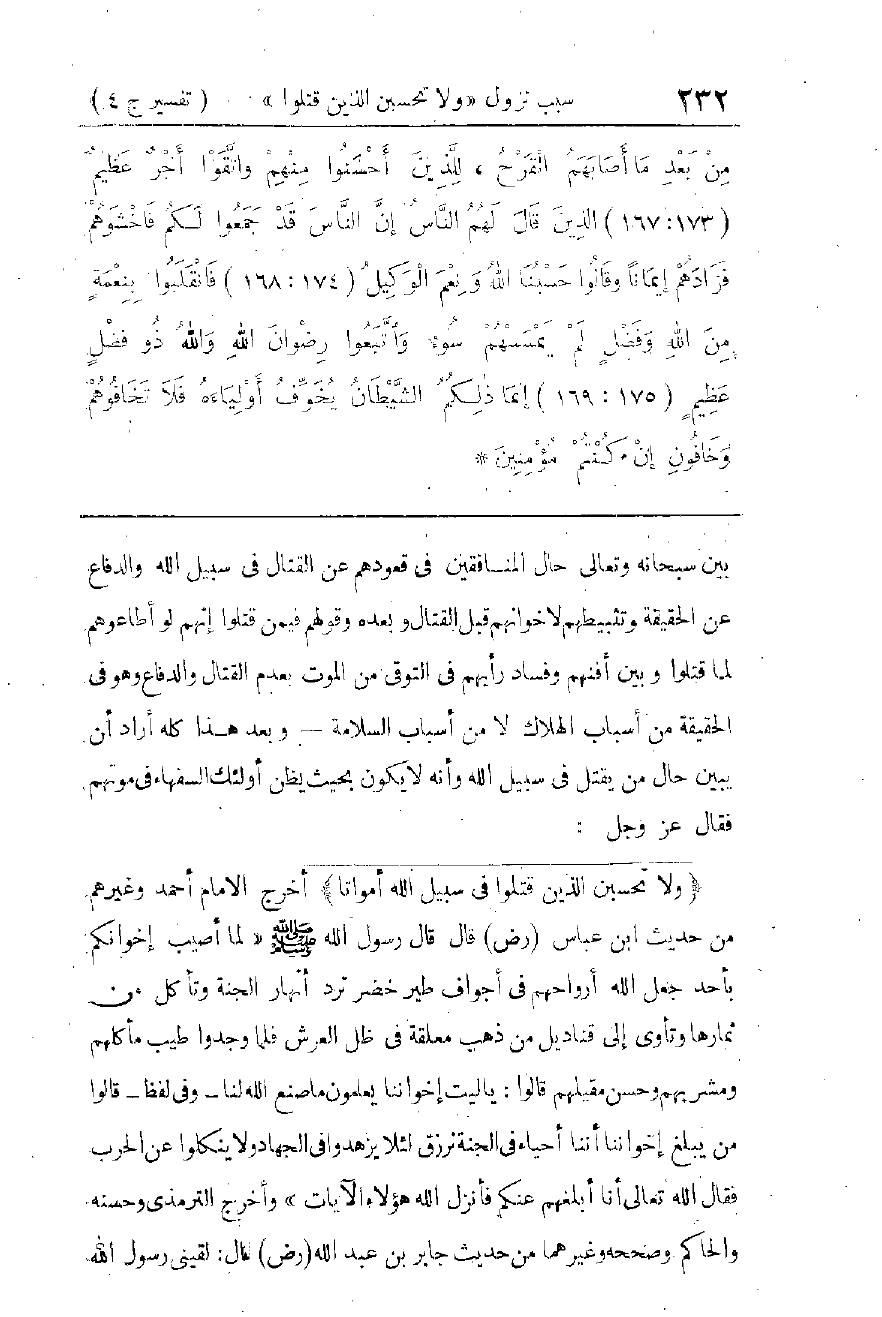 ٢٣٢ سبب نزول «ولا تحسبن الذين قتلوا» ( تفسير ج ٤ )
مِنْ بَعْدِ مَا أَصَابَهُمُ الْقَرْحُ ، لِلَّذِينَ أَحْسَنُوا مِنْهُمْ وَاتَّقَوْا أَجْرٌ عَظِيمٌ
(١٦٧:١٧٣) الَّذِينَ قَالَ لَهُمُ النَّاسُ إِنَّ النَّاسَ قَدْ جَمَعُوا لَكُمْ فَاخْشَوْهُمْ
فَزَادَهُمْ إِيمَانًا وَقَالُوا حَسْبُنَا اللهُ وَنِعْمَ الْوَكِيلُ (١٦٨:١٧٤) فَانْقَلَبُوا بِنِعْمَةٍ
مِنَ اللهِ وَفَضْلٍ لَمْ يَمْسَسْهُمْ سُوءٌ وَٱتَّبَعُوا رِضْوَانَ اللهِ وَاللهُ ذُو فَضْلٍ
عَظِيمٍ (١٦٩:١٧٥) إِنَّمَا ذَٰلِكُمُ الشَّيْطَانُ يُخَوِّفُ أَوْلِيَاءَهُ فَلاَ تَخَافُوهُمْ
وَخَافُونِ إِنْ كُنْتُمْ مُؤْمِنِينَ *
بين سبحانه وتعالى حال المنافقين فى قعودهم عن القتال فى سبيل الله والدفاع
عن الحقيقة وتثبيطهم لاخوانهم قبل القتال و بعده وقولهم فيمن قتلوا إنهم لو أطاعوهم
لما قتلوا و بين أفنهم وفساد رأيهم فى التوقى من الموت بعدم القتال والدفاع وهو فى
الحقيقة من أسباب الهلاك لا من أسباب السلامة — و بعد هذا كله أراد أن
يبين حال من يقتل فى سبيل الله وأنه لا يكون بحيث يظن أولئك السفهاء فى موتهم
فقال عز وجل :
﴿ ولا تحسبن الذين قتلوا فى سبيل الله أمواتا ﴾ أخرج الامام أحمد وغيرهم
من حديث ابن عباس (رض) قال قال رسول الله ﷺ « لما أصيب إخوانكم
بأحد جعل الله أرواحهم فى أجواف طير خضر ترد أنهار الجنة وتأكل من
ثمارها وتأوى إلى قناديل من ذهب معلقة فى ظل العرش فلما وجدوا طيب مأكلهم
ومشربهم وحسن مقيلهم قالوا : ياليت إخواننا يعلمون ماصنع الله لنا ـ وفى لفظ ـ قالوا
من يبلغ إخواننا أننا أحياء فى الجنة نرزق لئلا يزهدوا فى الجهاد ولا ينكلوا عن الحرب
فقال الله تعالى أنا أبلغهم عنكم فأنزل الله هؤلاء الآيات » وأخرج الترمذى وحسنه
والحاكم وصححه وغيرهما من حديث جابر بن عبد الله (رض) قال : لقينى رسول الله